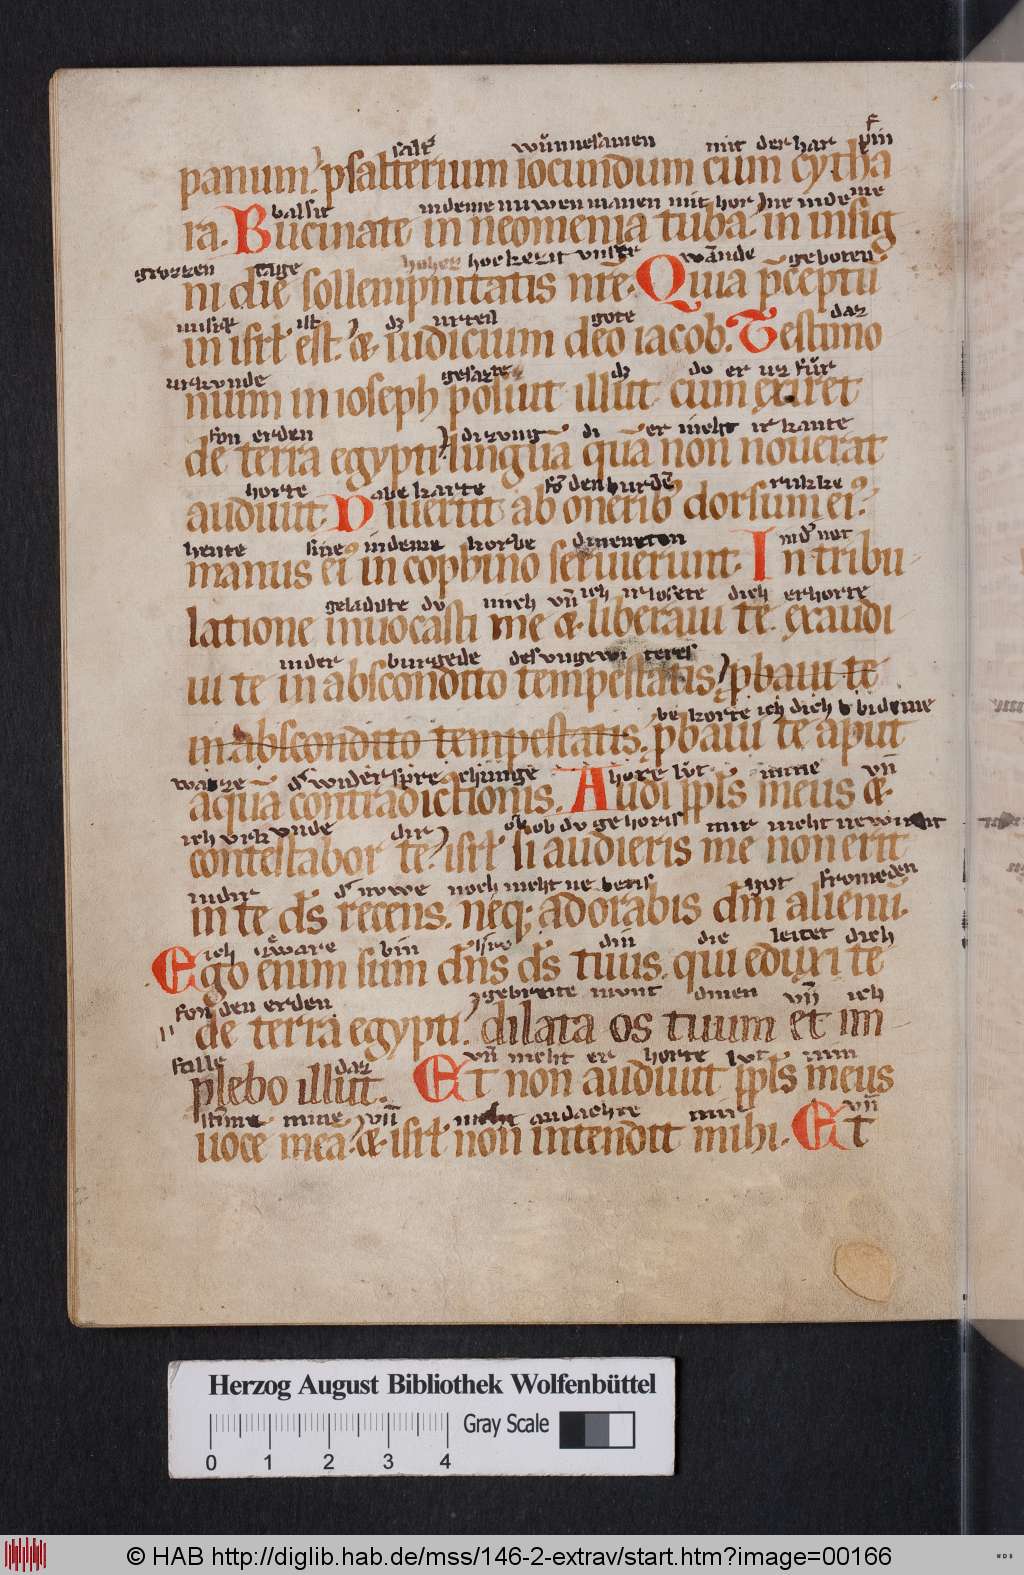 salt͛ wu̍nnesamen mit der har pin
panum. psalterium iocundum cum cytha
balsit indeme nuwen manen mit hor ne indeme
ra. Bucinate in neomenia tuba. in insig
grozzen tage hoher hockezit vnser wānde geboten
ni die sollempnitatis nr̄e. Quia p̄ceptū
ist dz urteil gote daz
in isrł est. & iudicium deo iacob. Testimo
urkunde gesazte dz do er uz fůr
num in ioseph posuit illut cum exiret
fon erden di zunḡ di er nieht irkante
de terra egypti. lingua qua non nouerat
horte abe karte fō den burdē rukke
audiuit. Diuertit ab onerib; dorsum ei;
hente sine indeme korbe dineneton nōt
manus ei; in cophino seruierunt. In tribu
geladute du mich vn̄ ich irlosete dich erhorte
latione inuocasti me & liberaui te. exaudi
inder burgede des ungewi teres
ui te in abscondito tempestatis. pbaui te
be korte ich dich bideme
in abscondito tempestatis. pbaui te aput
wazze d͛ widersprechunge hore lut mine vn̄
aqua contradictionis. Audi ppls meus &
ich urkunde dir ob du gehoris mir nieht newirdit
contestabor te. isrł si audieris me non erit
indir d͛ nowe noch nieht ne betis got fromeden
in te ds recens. neq; adorabis dm alienū.
ich zware bin din die leitet dich
Ego enim sum dns ds tuus. qui eduxi te
fon den erden gebreite munt dinen vn̄ ich
de terra egypti. dilata os tuum et im
falle daz vn̄ nieht er horte lut min
plebo illut. Et non audiuit ppls meus
stīme mine vn̄ nieht andachte mir vn̄
uoce mea. & isrł non intendit mihi. Et
Herzog August Bibliothek Wolfenbüttel
Gray Scale
0 1 2 3 4
© HAB http://diglib.hab.de/mss/146-2-extrav/start.htm?image=00166